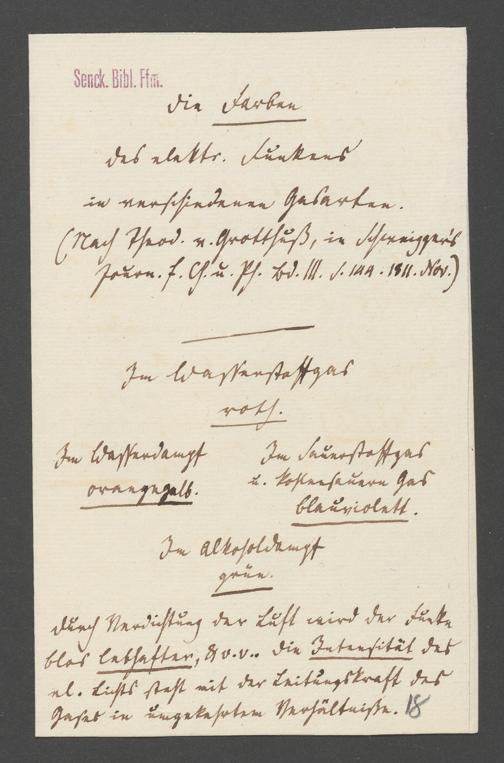 Senck. Bibl. Ffm.
Die Farben
des elektr. Funkens
in verschiedenen Gasarten.
(Nach Theod. v. Grotthuß, in Schweigger's
Journ. f. Ch. u. Ph. Bd. III. S. 144. 1811. Nov.)
Im Wasserstoffgas
roth.
Im Wasserdampf
orangegelb.
Im Sauerstoffgas
u. kohlensauern Gas
blauviolett.
Im Alkoholdampf
grün.
Durch Verdichtung der Luft wird der Funke
blos lebhafter, & v. v. Die Intensität des
el. Lichts steht mit der Leitungskraft des
Gases in umgekehrtem Verhältniße.
18